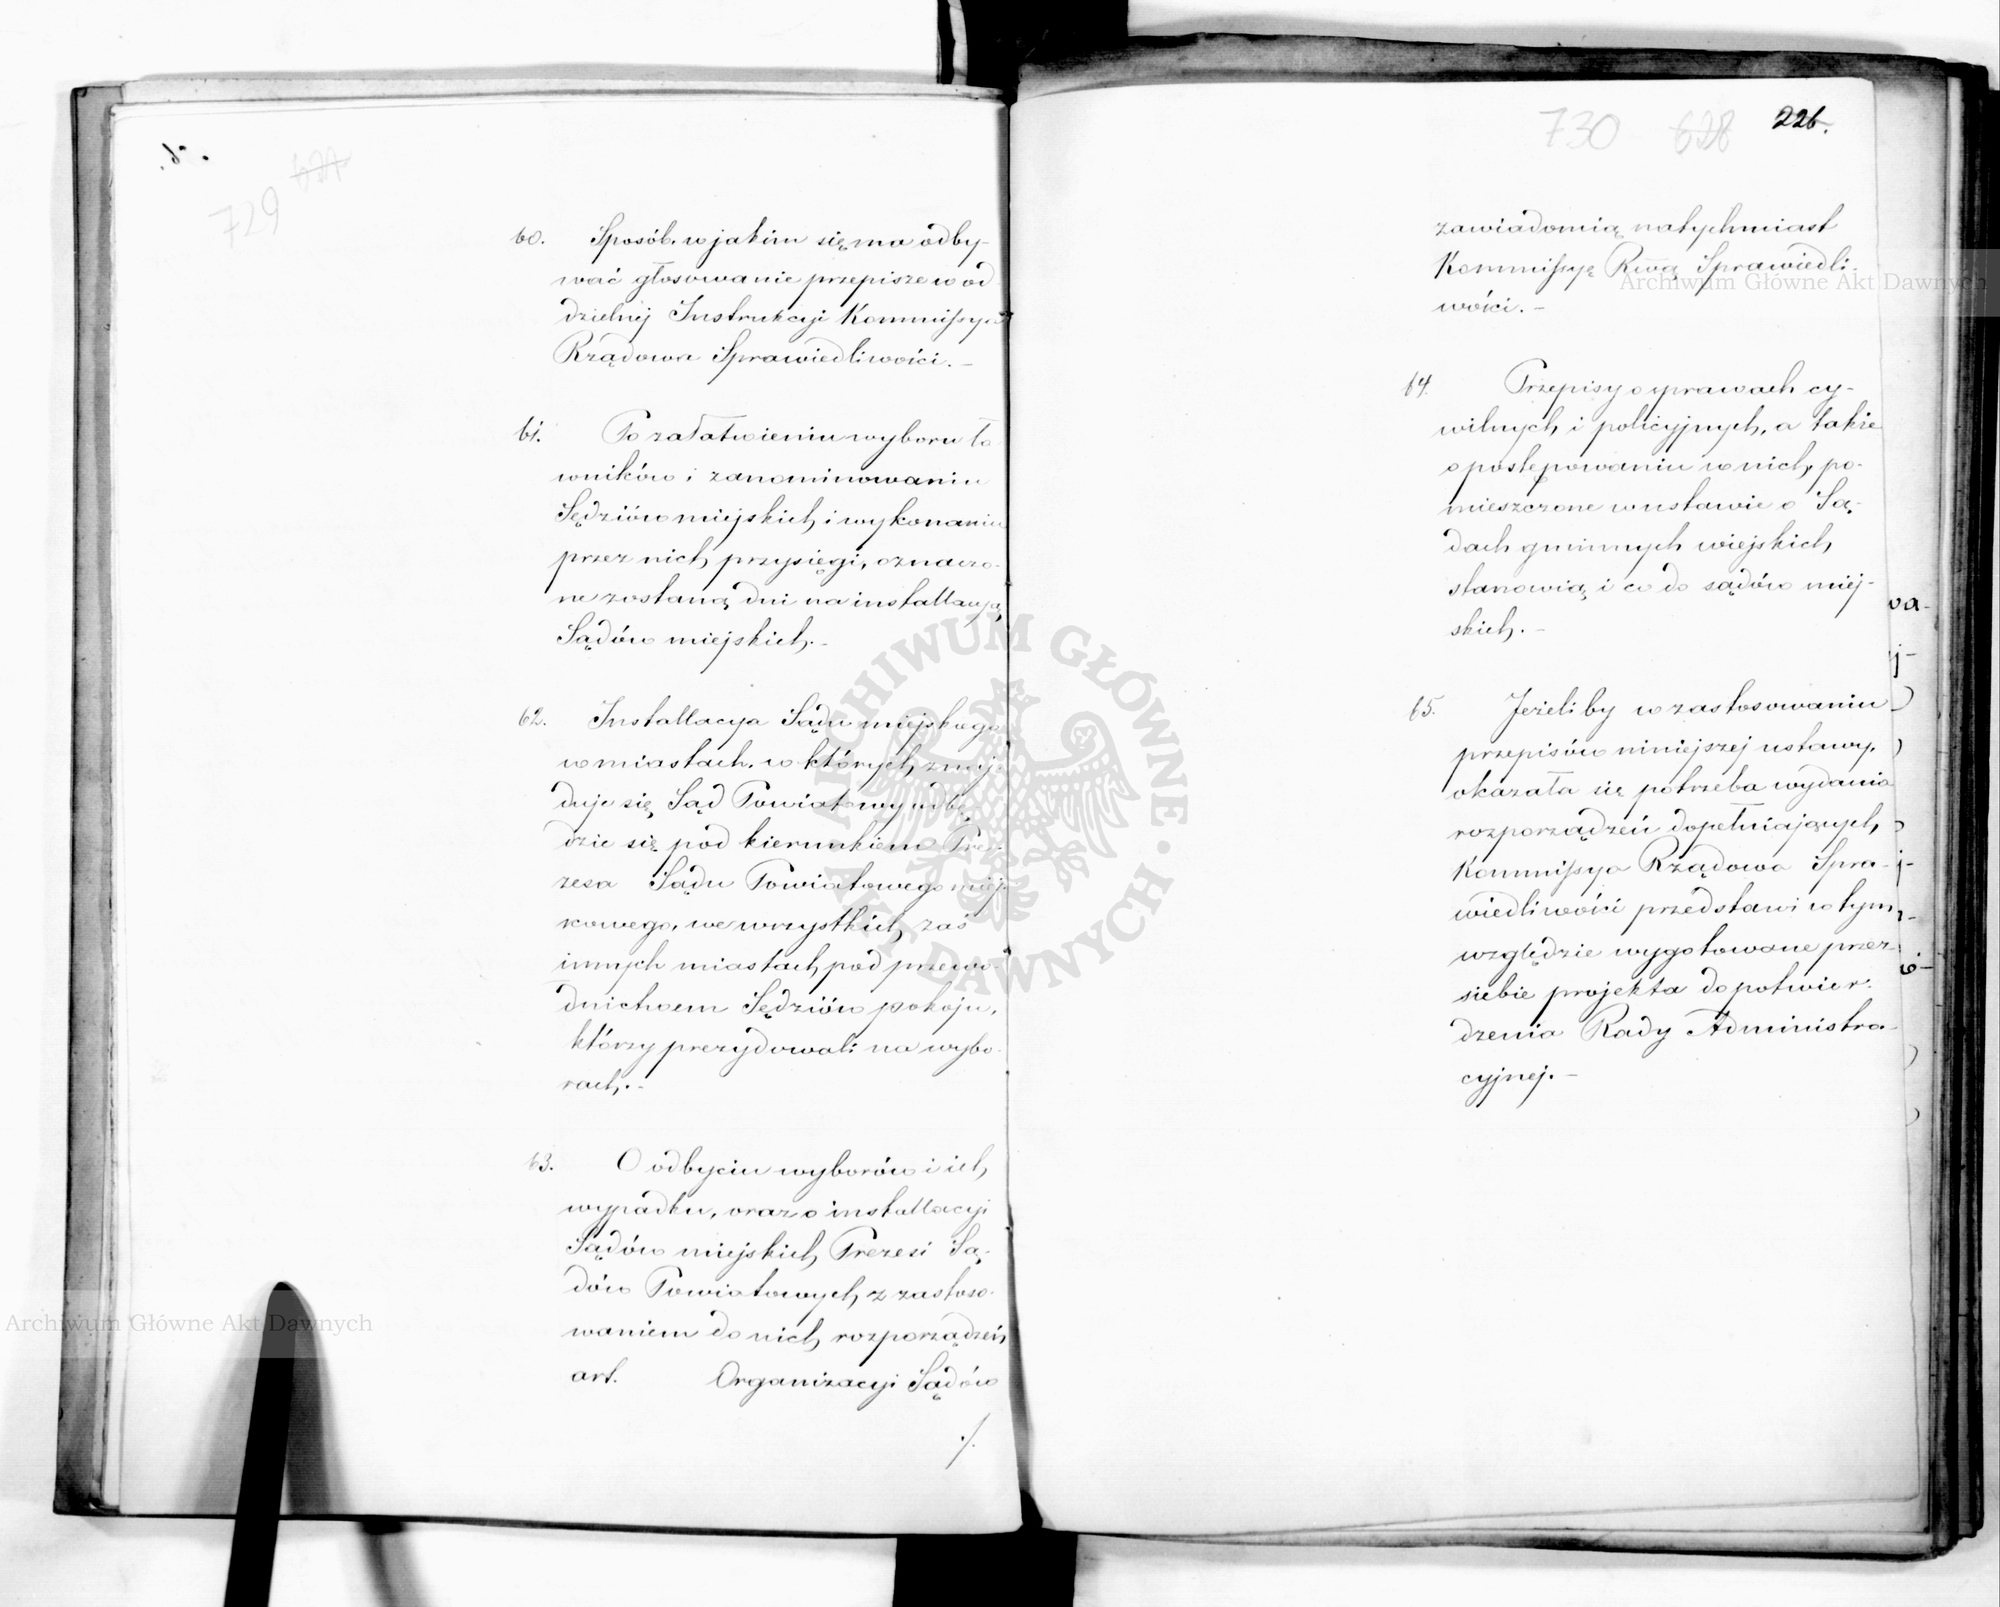 729 627
60. Sposób, w jakim się ma odby-
wać głosowanie przepisze w od
dzielnej Instrukcyi Kommissya
Rządowa Sprawiedliwości. –
61. Po załatwieniu wyboru ła
wników i zanominowaniu
Sędziów miejskich i wykonaniu
przez nich przysięgi, oznaczo-
ne zostaną dni na installacyą
Sądów miejskich. –
62. Installacya Sądu miejskiego
w miastach, w których znaj-
duje się Sąd Powiatowy odbę-
dzie się pod kierunkiem Pre-
zesa Sądu Powiatowego miej-
scowego, we wszystkich zaś
innych miastach pod przewo-
dnictwem Sędziów pokoju,
którzy prezydowali na wybo-
rach. –
63. O odbyciu wyborów i ich
wypadku, oraz o installacyi
Sądów miejskich Prezesi Są-
dów Powiatowych z zastoso-
waniem do nich rozporządzeń
art. Organizacyi Sądów
./.
730 628 226.
zawiadomią natychmiast
Kommissyę Rwą Sprawiedli-
wości. –
64. Przepisy o sprawach cy-
wilnych i policyjnych, a także
o postępowaniu w nich, po-
mieszczone w ustawie o Są-
dach gminnych wiejskich
stanowią i co do sądów miej-
skich. –
65. Jeżeliby w zastosowaniu
przepisów niniejszej ustawy,
okazała się potrzeba wydania
rozporządzeń dopełniających,
Kommissya Rządowa Spra-
wiedliwości przedstawi w tym
względzie wygotowane przez
siebie projekta do potwier-
dzenia Rady Administra-
cyjnej. –
Archiwum Główne Akt Dawnych
Archiwum Główne Akt Dawnych
ARCHIWUM GŁÓWNE AKT DAWNYCH